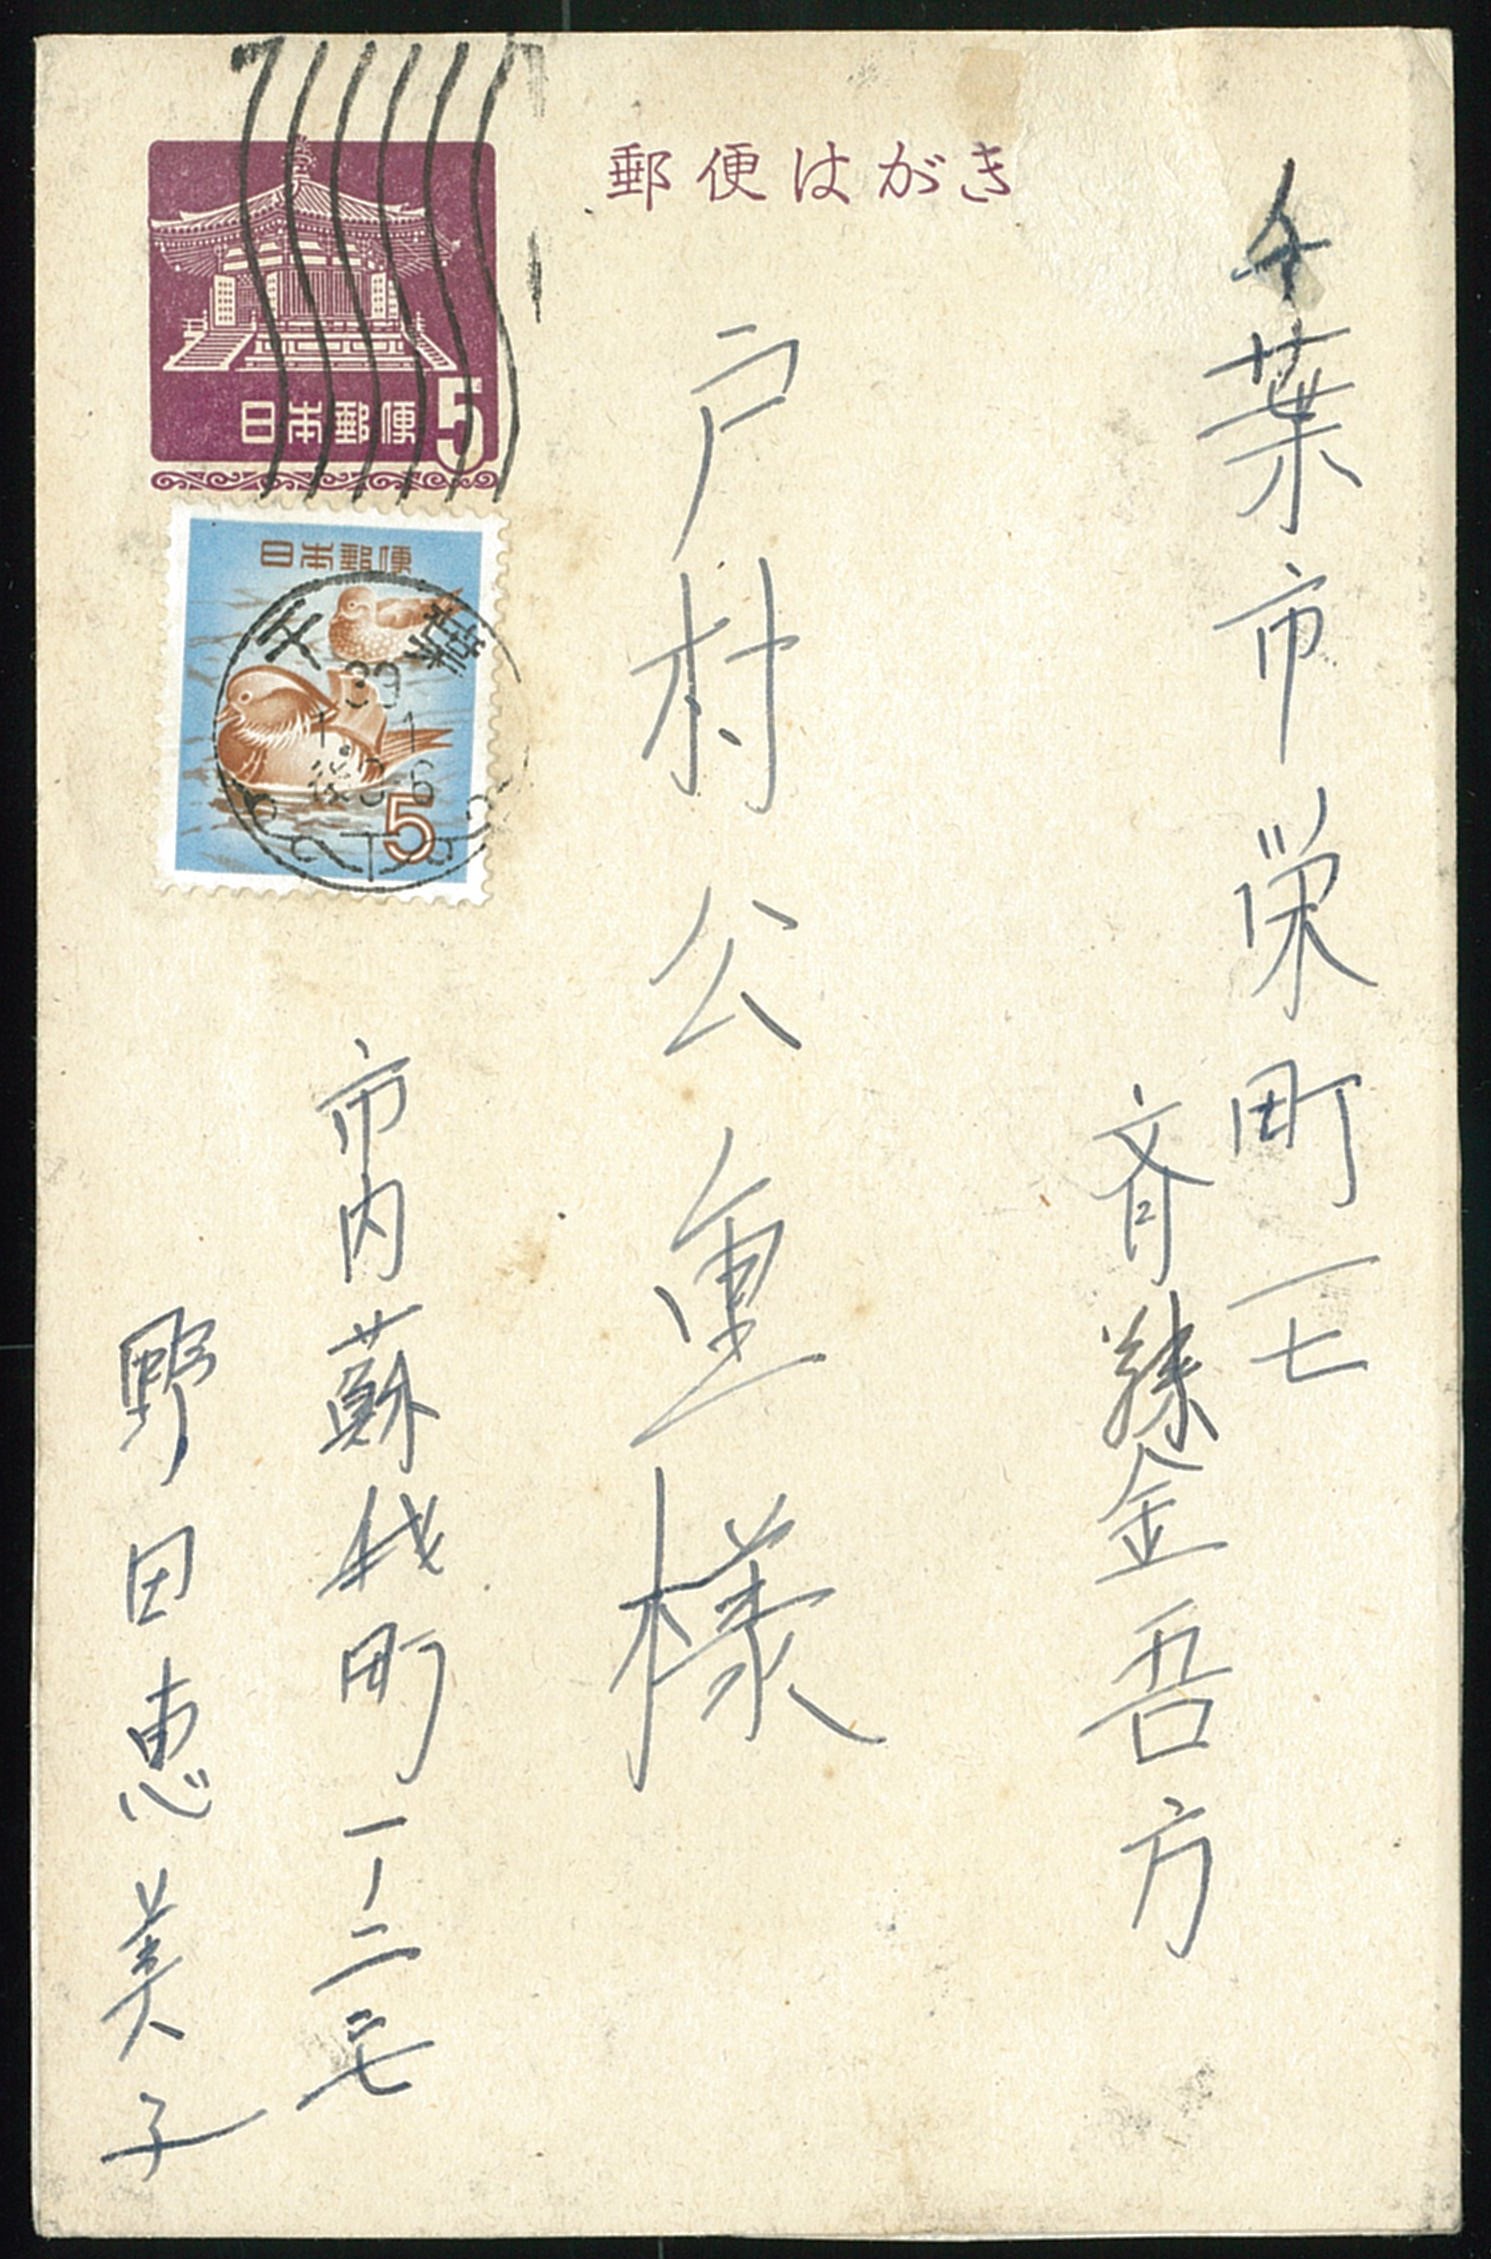 郵便はがき
日本郵便
5
日本郵便
5
千葉
39
1
千葉市栄町一七
齊藤金吾方
戸村公重様
市内蘇我町一ノ二三七
野田恵美子